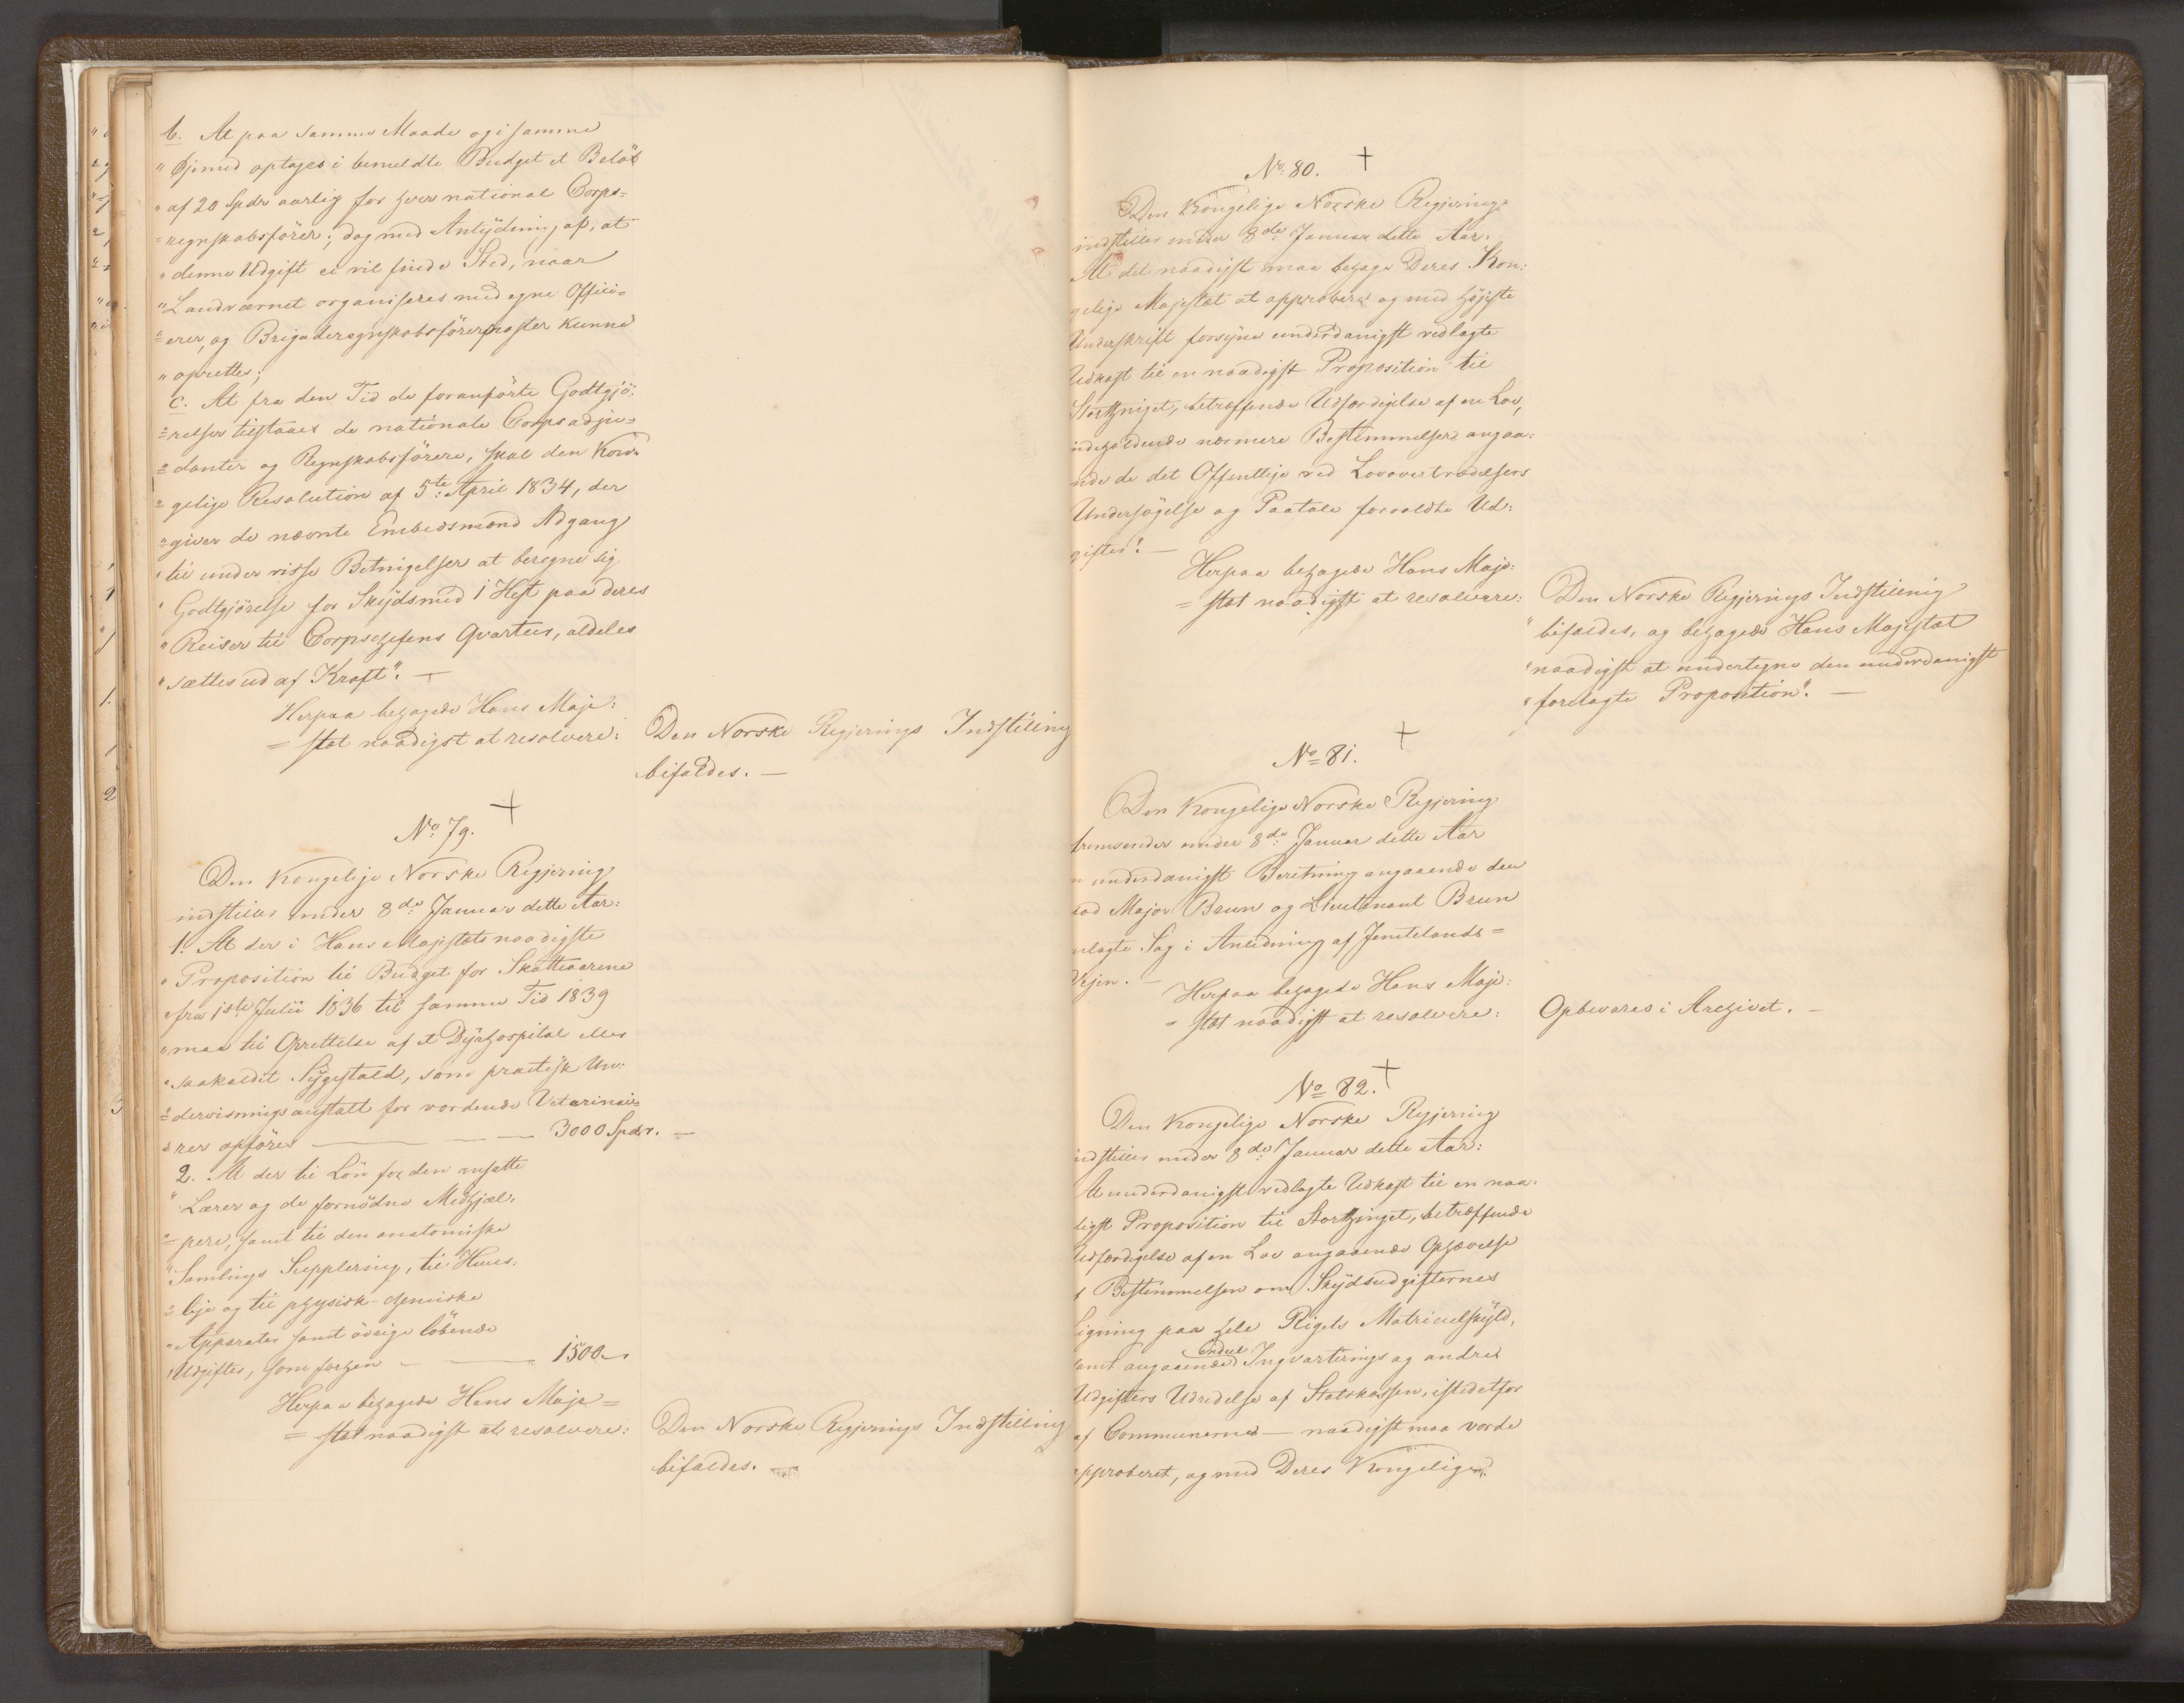 b. At paa samme Maade og i samme
" Øjemed optages i bemeldte Budget et Belöb
" af 20 Spdr aarlig for hver national Corps=
= regnskabsförer; dog med Antydning af, at
" denne Udgift ei vil finde Sted, naar
" Landværnet organiseres med egne Offici=
= erer, og Brigaderegnskabsförerposter kunne
" oprettes;
c. At fra den Tid de foranförte Godtgjö:
= relser tilstaaes de nationale Corpsadju=
= danter og Regnskabsförere, skal den Kon=
= gelige Resolution af 5te April 1834, der
" giver de nævnte Embedsmænd Adgang
" til under visse Betingelser at beregne sig
" Godtgjörelse for Skydsmed 1 Hest paa deres
" Reiser til Corpschefens Qvarteer, aldeles
" sættes ud af Kraft". —
Herpaa behagede Hans Maje:
= stæt naadigst at resolvere:
Den Norske Regjerings Indstilling
bifaldes. —
No 79.
Den Kongelige Norske Regjering
indstiller under 8de Januar dette Aar:
1. At der i Hans Majestæts naadigste
" Proposition til Budget for Skatteaarene
" fra 1ste Julii 1836 til samme Tid 1839
" maa til Oprettelse af et Dyrhospital eller
" saakaldet Sygestald, som practisk Un=
= dervisningsanstalt for vordende Veterinai=
= rer opföres — — — 3000 Spdr. —
2. At der til Lön for den ansatte
" Lærer og de fornödne Medhjæl:
= pere, samt til den anatomiske
" Samlings Supplering, til Huus:
= leje og til physisk-chemiske
" Apparater samt övrige löbende
" Udgifter, som forhen — — 1500 —
Herpaa behagede Hans Maje=
= stæt naadigst at resolvere:
Den Norske Regjerings Indstilling
bifaldes. —
No 80.
Den Kongelige Norske Regjering
indstiller under 8de Januar dette Aar:
At det naadigst maa behage Deres Kon:
gelige Majestæt at approbere og med höjeste
Underskrift forsyne underdanigst vedlagte
Udkast til en naadigst Proposition til
Storthinget, betræffende Udfærdigelse af en Lov,
indeholdende nærmere Bestemmelser angaa:
nde de det Offentlige ved Lovovertrædelsers
Undersögelse og Paatale forvoldte Ud:
gifter". —
Herpaa behagede Hans Maje:
= stæt naadigst at resolvere:
Den Norske Regjerings Indstilling
" bifaldes, og behagede Hans Majestæt
" naadigst at undertegne den underdanigst
" forelagte Proposition". —
No 81.
Den Kongelige Norske Regjering
fremsender under 8de Januar dette Aar
n underdanigst Beretning angaaende den
mod Major Brun og Lieutenant Brun
nlagte Sag i Anledning af Jemtelands=
Vejen. —
Herpaa behagede Hans Maje:
= stæt naadigst at resolvere:
Opbevares i Archivet. —
No 82.
Den Kongelige Norske Regjering
indstiller under 8de Januar dette Aar:
At underdanigst vedlagte Udkast til en naa:
digst Proposition til Storthinget, betræffende
Udfærdigelse af en Lov angaaende Ophævelse
f Bestemmelsen om Skydsudgifternes
Ligning paa hele Rigets Matriculskyld,
samt angaaende endeel Inqvarterings og andre
Udgifters Udredelse af Statskassen, istedetfor
af Communerne — naadigst maa vorde
approberet, og med Deres Kongelige